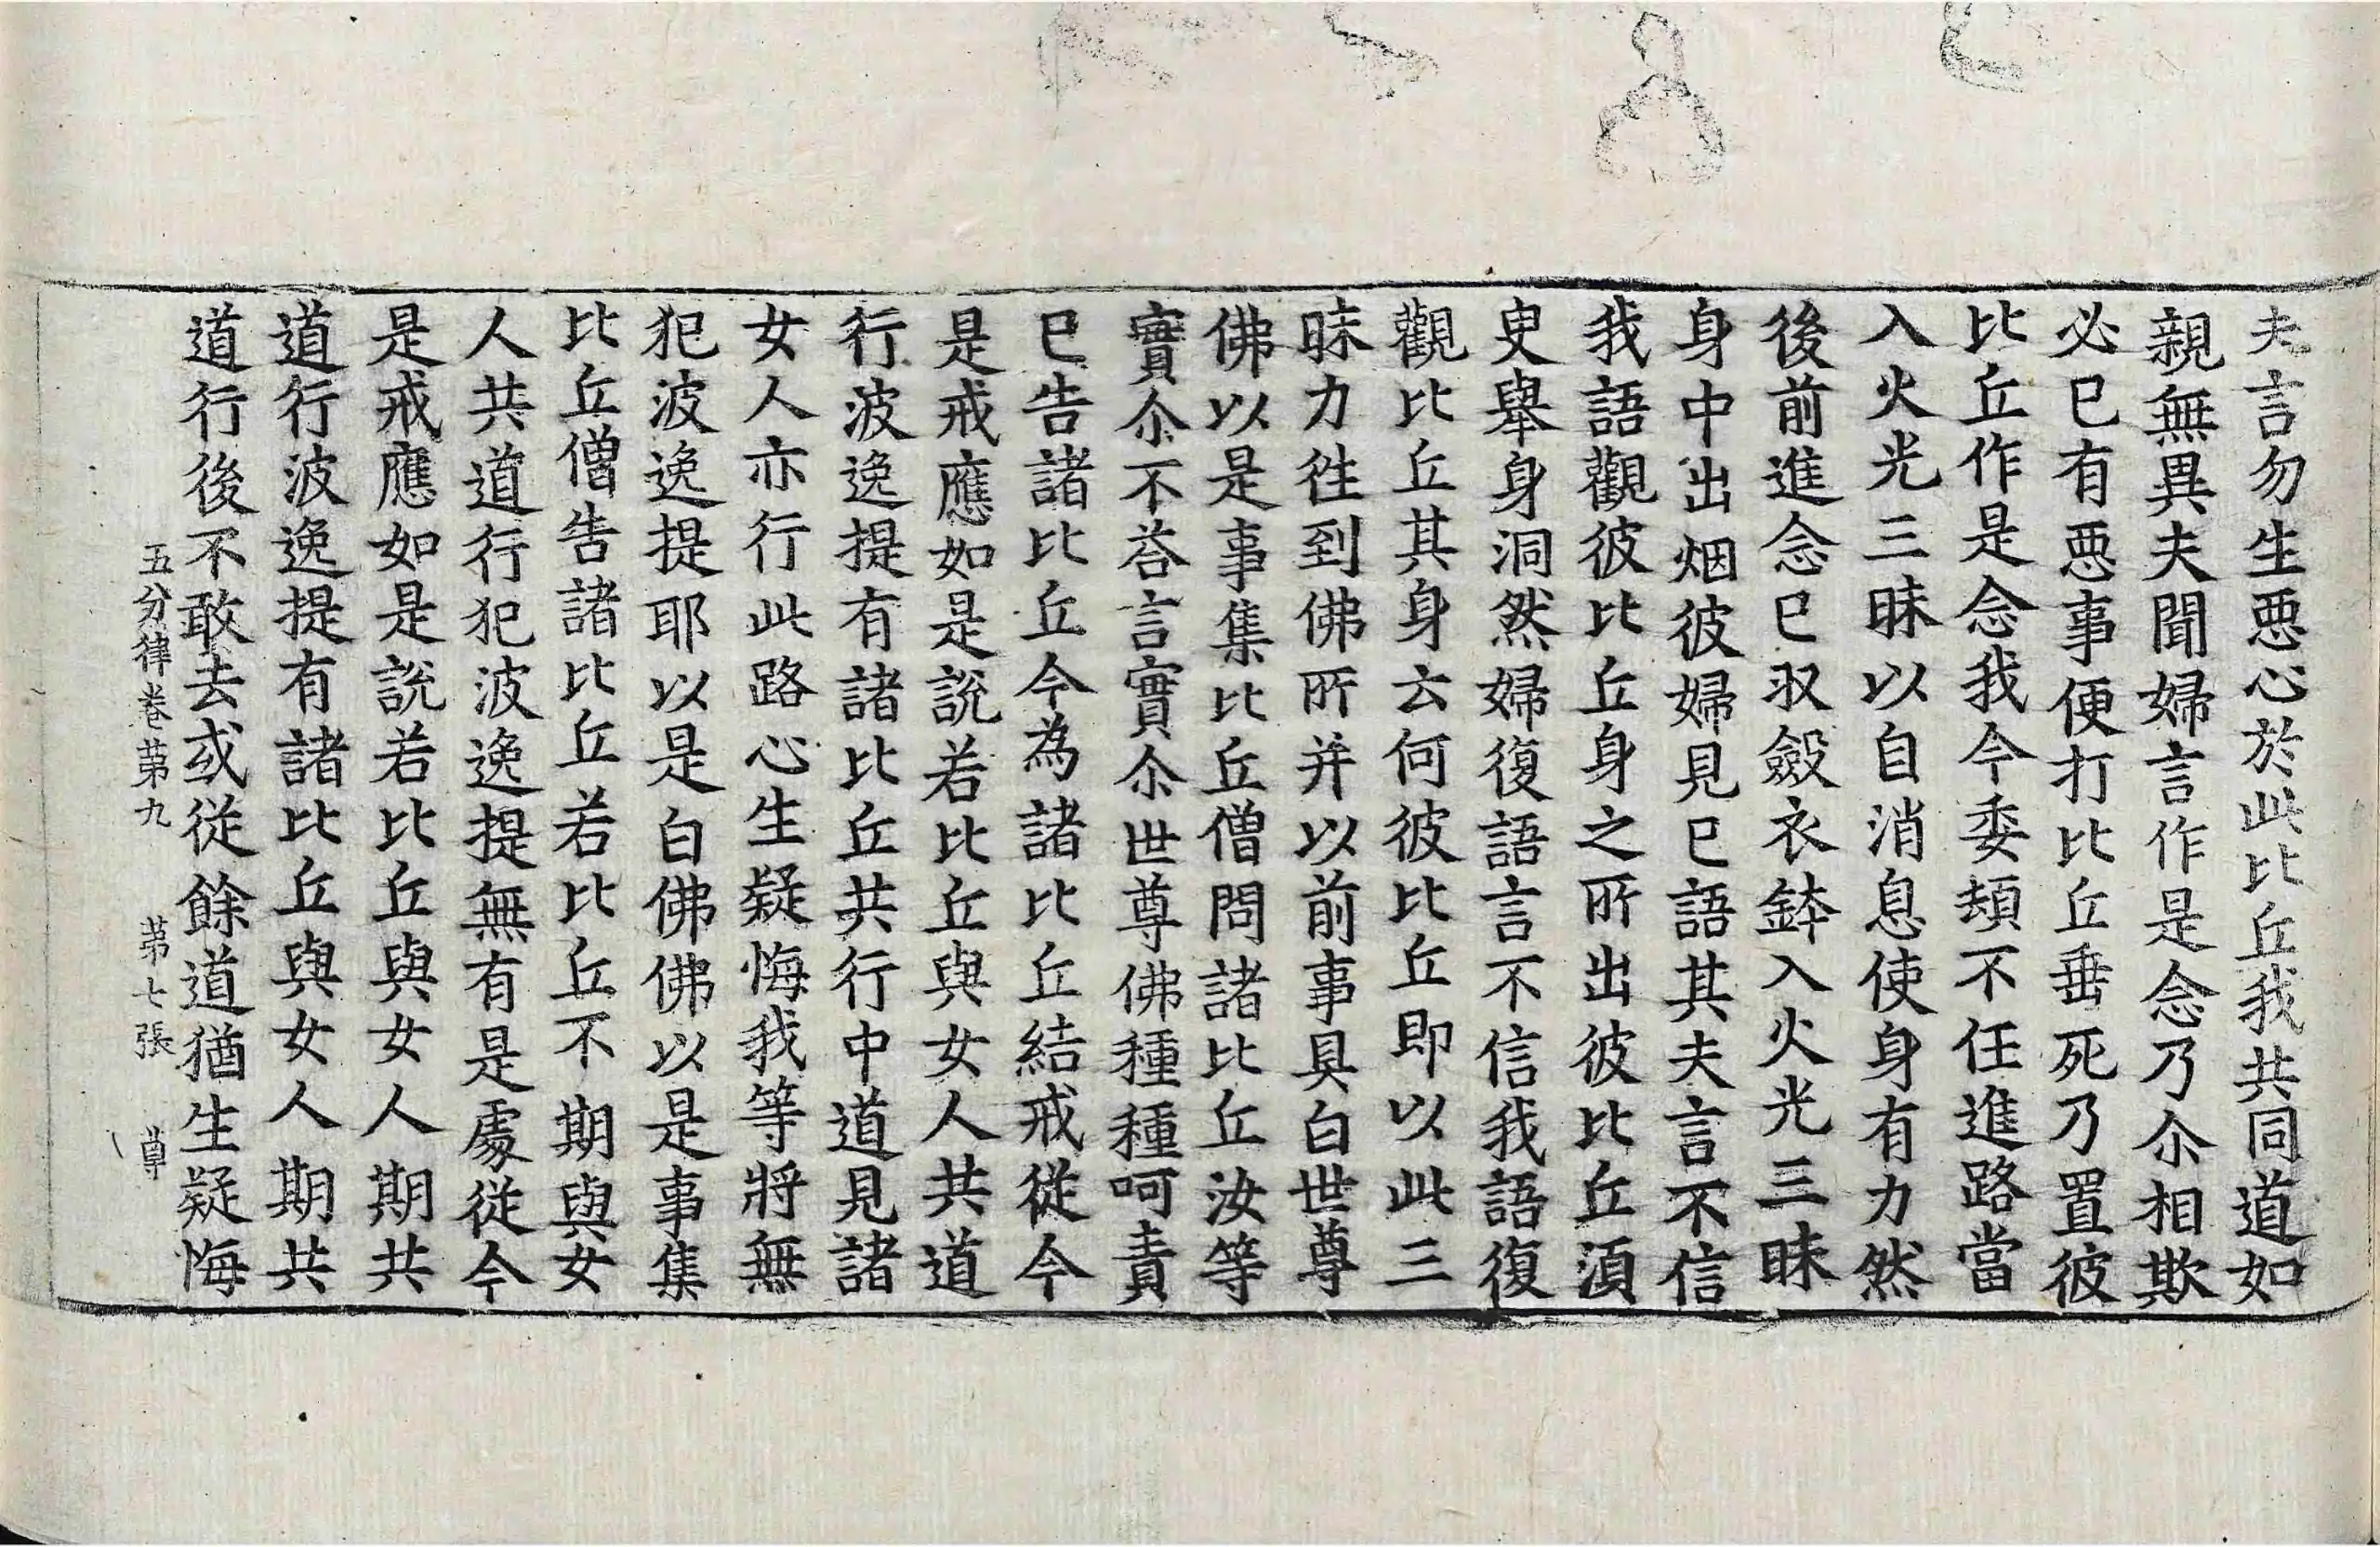 夫言勿生惡心於此比丘我共同道如
親無異夫聞婦言作是念乃尒相欺
必已有惡事便打比丘垂死乃置彼
比丘作是念我今委頓不任進路當
入火光三昧以自消息使身有力然
後前進念已収斂衣鉢入火光三昧
身中出烟彼婦見已語其夫言不信
我語觀彼比丘身之所出彼比丘湏
臾舉身洞然婦復語言不信我語復
觀比丘其身云何彼比丘即以此三
昧力徃到佛所并以前事具白世尊
佛以是事集比丘僧問諸比丘汝等
實尒不荅言實尒世尊佛種種呵責
已告諸比丘今為諸比丘結戒從今
是戒應如是說若比丘與女人共道
行波逸提有諸比丘共行中道見諸
女人亦行此路心生疑悔我等將無
犯波逸提耶以是白佛佛以是事集
比丘僧告諸比丘若比丘不期與女
人共道行犯波逸提無有是處從今
是戒應如是說若比丘與女人期共
道行波逸提有諸比丘與女人期共
道行後不敢去或從餘道猶生疑悔
五分律卷苐九 苐七張 尊